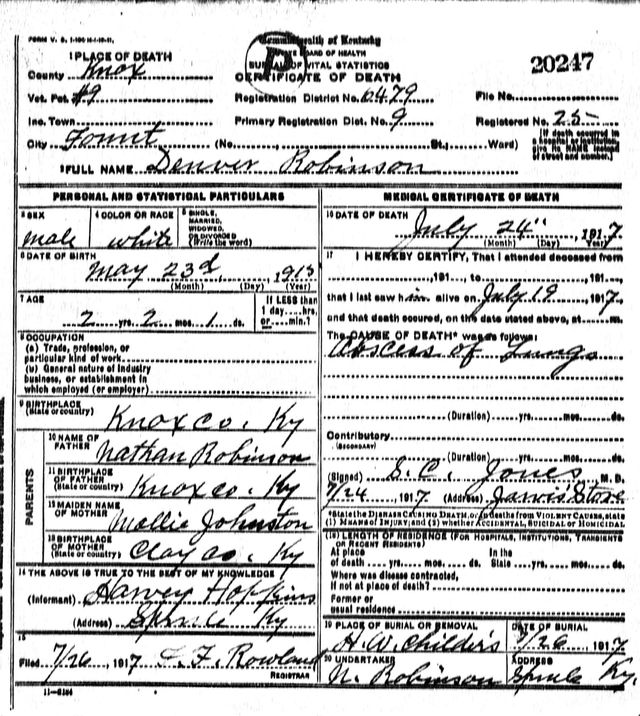 FORM V. S.
Commonwealth of Kentucky
STATE BOARD OF HEALTH
BUREAU OF VITAL STATISTICS
CERTIFICATE OF DEATH
20247
1 PLACE OF DEATH
County Knox
Vot. Pct. #9
Inc. Town
City Fount
Registration District No. 6479
File No.
Primary Registration Dist. No. 9
Registered No. 25-
(No. St., Ward)
[If death occurred in a hospital or institution, give its NAME instead of street and number.]
2 FULL NAME Denver Robinson
PERSONAL AND STATISTICAL PARTICULARS
3 SEX male
4 COLOR OR RACE white
5 SINGLE, MARRIED, WIDOWED, OR DIVORCED (Write the word)
6 DATE OF BIRTH
May 23d, 1915
(Month) (Day) (Year)
7 AGE
2 yrs. 2 mos. 1 ds.
If LESS than 1 day....hrs. or....min.?
8 OCCUPATION
(a) Trade, profession, or particular kind of work
(b) General nature of industry business, or establishment in which employed (or employer)
9 BIRTHPLACE (State or country) Knox co. Ky
PARENTS
10 NAME OF FATHER Nathan Robinson
11 BIRTHPLACE OF FATHER (State or country) Knox co. Ky
12 MAIDEN NAME OF MOTHER Mollie Johnston
13 BIRTHPLACE OF MOTHER (State or country) Clay co. Ky
14 THE ABOVE IS TRUE TO THE BEST OF MY KNOWLEDGE
(Informant) Harvey Hopkins
(Address) Sprule Ky
15
Filed 7/26 1917 F. Rowland
REGISTRAR
MEDICAL CERTIFICATE OF DEATH
16 DATE OF DEATH July 24" 1917
(Month) (Day) (Year)
17 I HEREBY CERTIFY, That I attended deceased from
, 191 to , 191
that I last saw him alive on July 19, 1917
and that death occurred, on the date stated above, at m.
The CAUSE OF DEATH* was as follows:
Abscess of Lungs
(Duration) yrs. mos. ds.
Contributory
(SECONDARY)
(Duration) yrs. mos. ds.
(Signed) S. C. Jones, M. D.
7/24 1917 (Address) Jarvis Store
*State the DISEASE CAUSING DEATH, or, in deaths from VIOLENT CAUSES, state
(1) MEANS OF INJURY; and (2) whether ACCIDENTAL, SUICIDAL or HOMICIDAL
(18) LENGTH OF RESIDENCE (FOR HOSPITALS, INSTITUTIONS, TRANSIENTS OR RECENT RESIDENTS)
At place of death yrs. mos. ds. In the State yrs. mos. ds.
Where was disease contracted, if not at place of death?
Former or usual residence
19 PLACE OF BURIAL OR REMOVAL
H. W. Childers
DATE OF BURIAL
7/26 1917
20 UNDERTAKER
N. Robinson
ADDRESS
Sprule Ky.